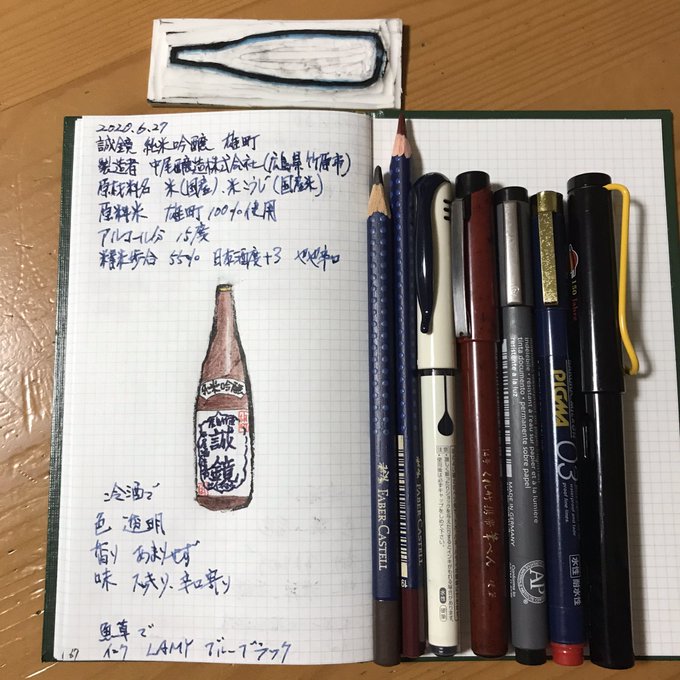 2020.6.27
誠鏡 純米吟醸 雄町
製造者 中尾醸造株式会社(広島県竹原市)
原材料名 米(国産)、米こうじ(国産米)
原料米 雄町100%使用
アルコール分 15度
精米歩合 55% 日本酒度+3 やや辛口
純米吟醸
誠
鏡
冷酒で
色 透明
香り あまりせず
味 スッキリ、辛口寄り
インク LAMY ブルーブラック
FABER-CASTELL
FABER-CASTELL
indelible · résistant à l'eau sur papier et à la lumière
tinta documento · permanente sobre papel
MADE IN GERMANY
AP
PIGMA
03
水性 耐水性